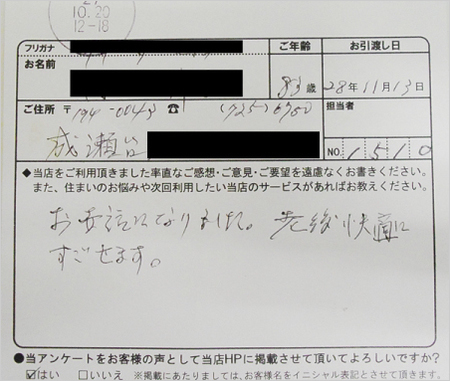 10.20
12-18
フリガナ
ご年齢
お引渡し日
お名前
83歳
28年11月13日
ご住所 〒194-0043 ☎ (725)6980
担当者
成瀬台
NO. 1510
◆当店をご利用頂きました率直なご感想・ご意見・ご要望を遠慮なくお書きください。
また、住まいのお悩みや次回利用したい当店のサービスがあればお教えください。
お世話になりました。老後快適に
すごせます。
●当アンケートをお客様の声として当店HPに掲載させて頂いてよろしいですか?
☑はい □いいえ ※掲載にあたりましては、お客様名をイニシャル表記とさせて頂きます。